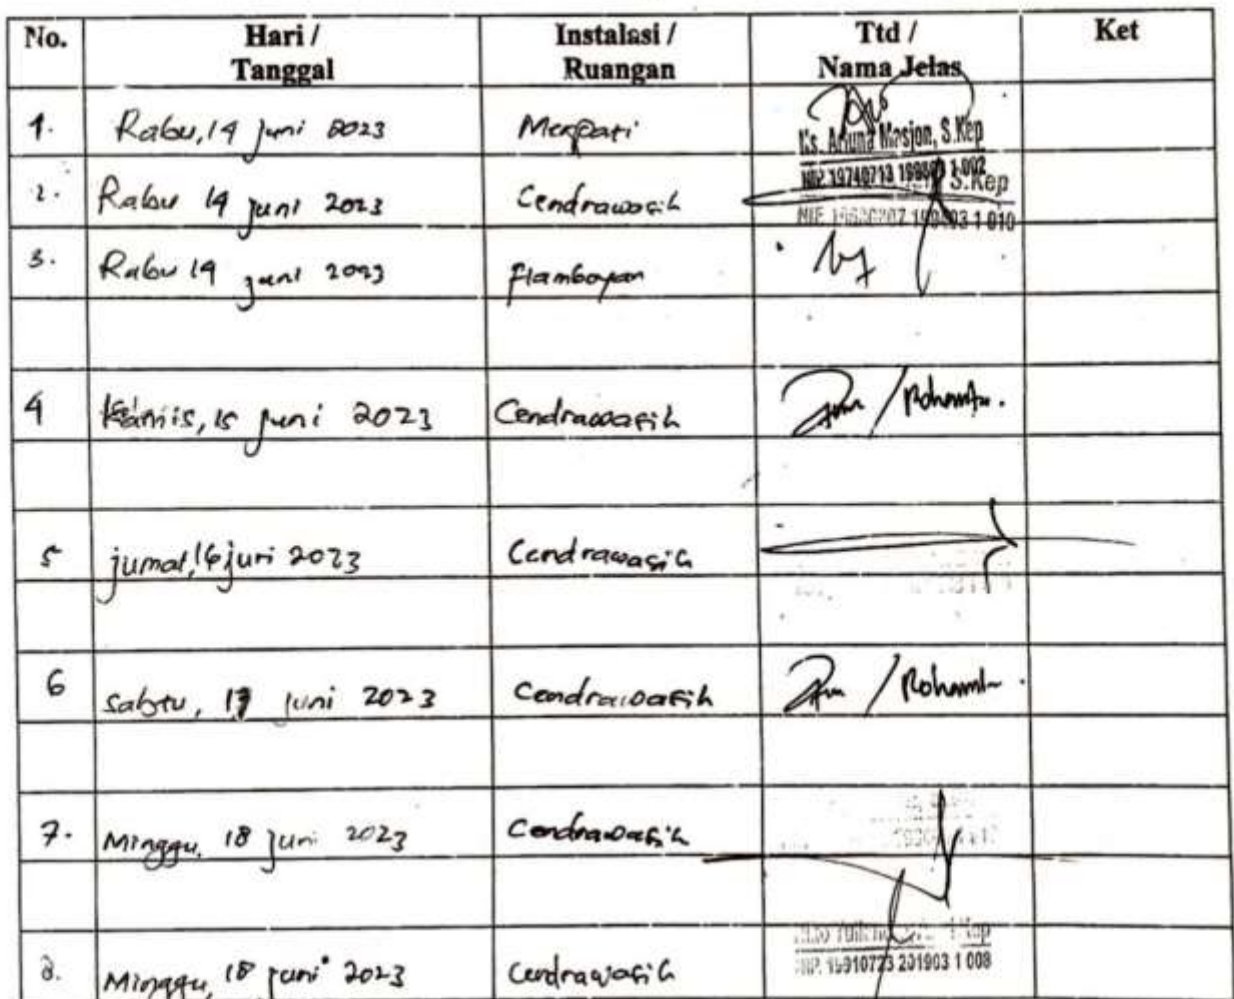 No. Hari / Tanggal Instalasi / Ruangan Ttd / Nama Jelas Ket
1. Rabu, 14 Juni 2023 Merpati
Masjon, S.Kep
NIP. 19740713
2. Rabu 14 Juni 2023 Cendrawasih
S.Kep
3. Rabu 14 Juni 2023 Flamboyan
4 Kamis, 15 Juni 2023 Cendrawasih
5 jumat, 16 juni 2023 Cendrawasih
6 Sabtu, 17 Juni 2023 Cendrawasih
7. Minggu, 18 Juni 2023 Cendrawasih
8. Minggu, 18 Juni 2023 Cendrawasih
NIP. 19910723 201903 1 008